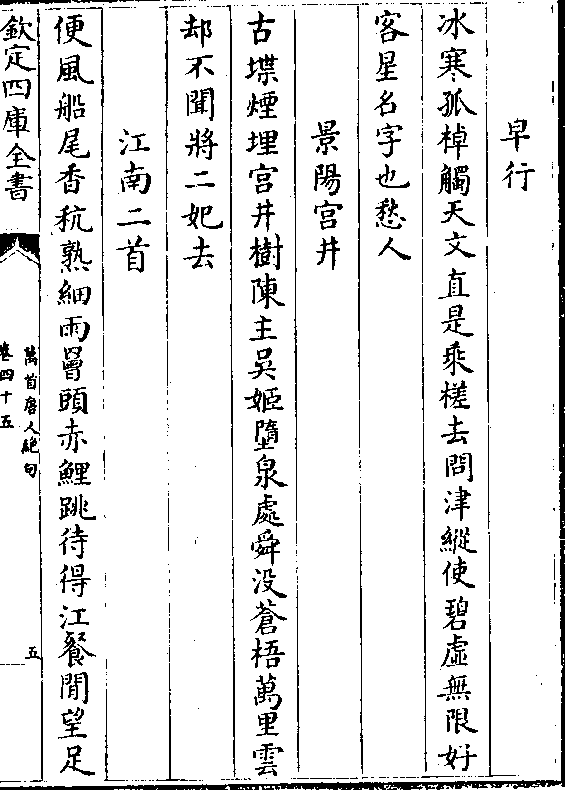 早行
冰寒孤棹觸天文直是乘槎去問津縱使碧虛無限好
客星名字也愁人
景陽宮井
古堞煙埋宮井樹陳主吳姬墮泉處舜没蒼梧萬里雲
却不聞將二妃去
江南二首
便風船尾香秔熟細雨罾頭赤鯉跳待得江餐閒望足
欽定四庫全書
萬首唐人絶句
卷四十五
五